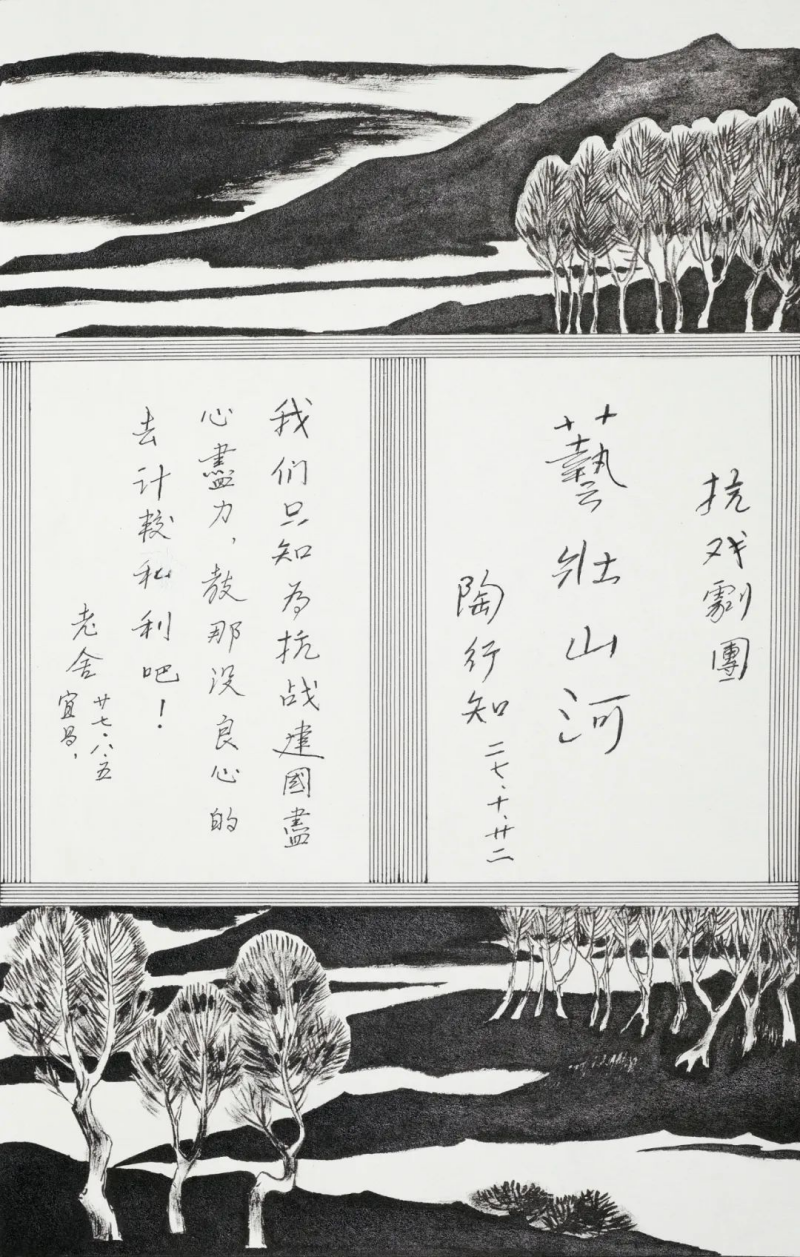 抗戏劇團
藝壯山河
陶行知
二七、十、廿二
我们只知为抗战建國盡
心盡力，教那没良心的
去计较私利吧！
老舍
廿七、八、五
宜昌，